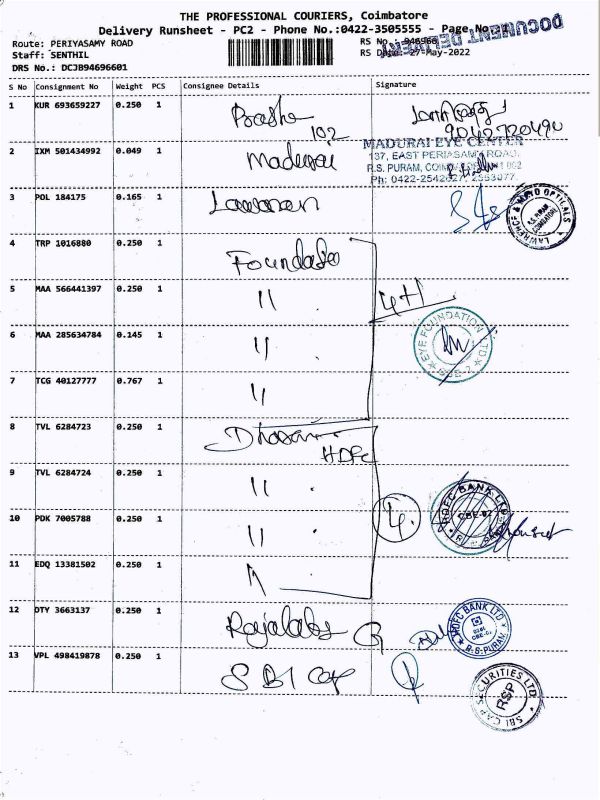 THE PROFESSIONAL COURIERS, Coimbatore
Delivery Runsheet - PC2 - Phone No.:0422-3505555 - Page No.
DOCUMENT DELIVERY
Route: PERIYASAMY ROAD
RS No.: 946966
Staff: SENTHIL
RS Date: 27-May-2022
DRS No.: DCJB94696601
S No Consignment No Weight PCS Consignee Details Signature
1 KUR 693659227 0.250 1
102 9042720490
2 IXM 501434992 0.049 1 Madurai
MADURAI EYE CENTER
137, EAST PERIASAMY ROAD,
R.S. PURAM,
Ph: 0422-
3 POL 184175 0.165 1
LAWRENCE & MAYO OPTICALS
R.S. PURAM
COIMBATORE
4 TRP 1016880 0.250 1
5 MAA 566441397 0.250 1 "
6 MAA 285634784 0.145 1 "
EYE FOUNDATION LTD
CBE-2
7 TCG 40127777 0.767 1 "
8 TVL 6284723 0.250 1
HDFC
9 TVL 6284724 0.250 1 "
10 PDK 7005788 0.250 1 " 4.
HDFC BANK LTD
CBE-02
11 EDQ 13381502 0.250 1
12 DTY 3663137 0.250 1
HDFC BANK LTD
R.S.PURAM
13 VPL 498419878 0.250 1 SBI Cap
SBI CAP SECURITIES LTD
RSP